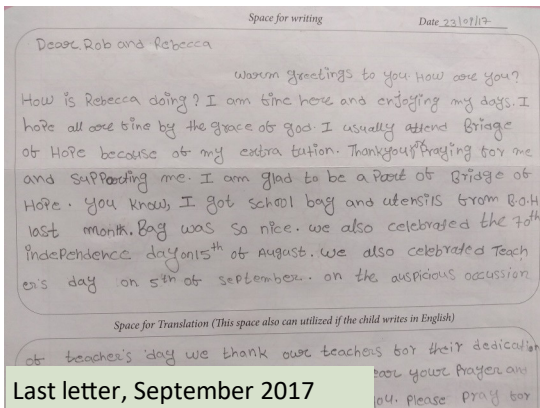 Space for writing Date 23/09/17
Dear, Rob and Rebecca
warm greetings to you. How are you?
How is Rebecca doing? I am fine here and enjoying my days. I
hope all are fine by the grace of god. I usually attend Bridge
of Hope because of my extra tution. Thankyou for Praying for me
and supporting me. I am glad to be a Part of Bridge of
Hope. you know, I got school bag and utensils from B.O.H
last month. Bag was so nice. we also celebrated the 70th
independence day on 15th of August. we also celebrated Teach
er's day on 5th of september. on the auspicious occussion
Space for Translation (This space also can utilized if the child writes in English)
of teacher's day we thank our teachers for their dedication
your Prayer and
you. Please pray for
Last letter, September 2017